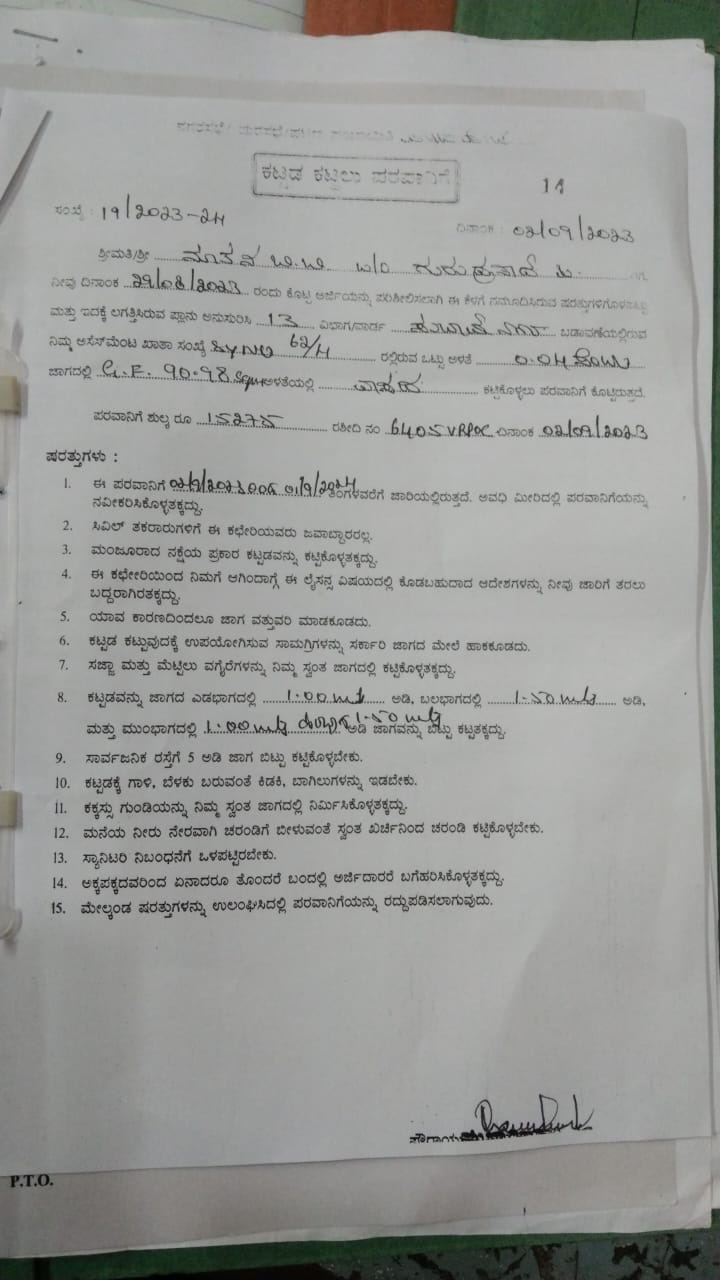 ಕಟ್ಟಡ ಕಟ್ಟಲು ಪರವಾನಿಗೆ
14
ಸಂಖ್ಯೆ : 19/2023-24
ದಿನಾಂಕ : 02/09/2023
ಶ್ರೀಮತಿ/ಶ್ರೀ W/O ಗುರುಪ್ರಸಾದ್ ಗೆ,
ನೀವು ದಿನಾಂಕ 29/08/2023 ರಂದು ಕೊಟ್ಟ ಅರ್ಜಿಯನ್ನು ಪರಿಶೀಲಿಸಲಾಗಿ ಈ ಕೆಳಗೆ ನಮೂದಿಸಿರುವ ಷರತ್ತುಗಳಿಗೊಳಪಟ್ಟು
ಮತ್ತು ಇದಕ್ಕೆ ಲಗತ್ತಿಸಿರುವ ಪ್ಲಾನು ಅನುಸುರಿಸಿ 13 ವಿಭಾಗ/ವಾರ್ಡ ಬಡಾವಣೆಯಲ್ಲಿರುವ
ನಿಮ್ಮ ಅಸೆಸ್‌ಮೆಂಟ ಖಾತಾ ಸಂಖ್ಯೆ Sy No 62/4 ರಲ್ಲಿರುವ ಒಟ್ಟು ಅಳತೆ 0.04
ಜಾಗದಲ್ಲಿ G.F. 90.98 Sqm ಅಳತೆಯಲ್ಲಿ ವಾಸದ ಕಟ್ಟಿಕೊಳ್ಳಲು ಪರವಾನಿಗೆ ಕೊಟ್ಟಿರುತ್ತದೆ.
ಪರವಾನಿಗೆ ಶುಲ್ಕ ರೂ 15275 ರಶೀದಿ ನಂ 6405 ದಿನಾಂಕ 02/09/2023
ಷರತ್ತುಗಳು :
1. ಈ ಪರವಾನಿಗೆ 02/9/2023 01/9/2024 ತಿಂಗಳವರೆಗೆ ಜಾರಿಯಲ್ಲಿರುತ್ತದೆ. ಅವಧಿ ಮೀರಿದಲ್ಲಿ ಪರವಾನಿಗೆಯನ್ನು
ನವೀಕರಿಸಿಕೊಳ್ಳತಕ್ಕದ್ದು.
2. ಸಿವಿಲ್ ತಕರಾರುಗಳಿಗೆ ಈ ಕಛೇರಿಯವರು ಜವಾಬ್ದಾರರಲ್ಲ.
3. ಮಂಜೂರಾದ ನಕ್ಷೆಯ ಪ್ರಕಾರ ಕಟ್ಟಡವನ್ನು ಕಟ್ಟಿಕೊಳ್ಳತಕ್ಕದ್ದು.
4. ಈ ಕಛೇರಿಯಿಂದ ನಿಮಗೆ ಆಗಿಂದಾಗ್ಗೆ ಈ ಲೈಸನ್ಸ ವಿಷಯದಲ್ಲಿ ಕೊಡಬಹುದಾದ ಆದೇಶಗಳನ್ನು ನೀವು ಜಾರಿಗೆ ತರಲು
ಬದ್ದರಾಗಿರತಕ್ಕದ್ದು.
5. ಯಾವ ಕಾರಣದಿಂದಲೂ ಜಾಗ ವತ್ತುವರಿ ಮಾಡಕೂಡದು.
6. ಕಟ್ಟಡ ಕಟ್ಟುವುದಕ್ಕೆ ಉಪಯೋಗಿಸುವ ಸಾಮಗ್ರಿಗಳನ್ನು ಸರ್ಕಾರಿ ಜಾಗದ ಮೇಲೆ ಹಾಕಕೂಡದು.
7. ಸಜ್ಜಾ ಮತ್ತು ಮೆಟ್ಟಿಲು ವಗೈರೆಗಳನ್ನು ನಿಮ್ಮ ಸ್ವಂತ ಜಾಗದಲ್ಲಿ ಕಟ್ಟಿಕೊಳ್ಳತಕ್ಕದ್ದು.
8. ಕಟ್ಟಡವನ್ನು ಜಾಗದ ಎಡಭಾಗದಲ್ಲಿ 1.00 mt ಅಡಿ, ಬಲಭಾಗದಲ್ಲಿ 1.50 mt ಅಡಿ,
ಮತ್ತು ಮುಂಭಾಗದಲ್ಲಿ 1.00 mt 1.50 mt ಅಡಿ ಜಾಗವನ್ನು ಬಿಟ್ಟು ಕಟ್ಟತಕ್ಕದ್ದು.
9. ಸಾರ್ವಜನಿಕ ರಸ್ತೆಗೆ 5 ಅಡಿ ಜಾಗ ಬಿಟ್ಟು ಕಟ್ಟಿಕೊಳ್ಳಬೇಕು.
10. ಕಟ್ಟಡಕ್ಕೆ ಗಾಳಿ, ಬೆಳಕು ಬರುವಂತೆ ಕಿಡಕಿ, ಬಾಗಿಲುಗಳನ್ನು ಇಡಬೇಕು.
11. ಕಕ್ಕಸ್ಸು ಗುಂಡಿಯನ್ನು ನಿಮ್ಮ ಸ್ವಂತ ಜಾಗದಲ್ಲಿ ನಿರ್ಮಿಸಿಕೊಳ್ಳತಕ್ಕದ್ದು.
12. ಮನೆಯ ನೀರು ನೇರವಾಗಿ ಚರಂಡಿಗೆ ಬೀಳುವಂತೆ ಸ್ವಂತ ಖರ್ಚಿನಿಂದ ಚರಂಡಿ ಕಟ್ಟಿಕೊಳ್ಳಬೇಕು.
13. ಸ್ಯಾನಿಟರಿ ನಿಬಂಧನೆಗೆ ಒಳಪಟ್ಟಿರಬೇಕು.
14. ಅಕ್ಕಪಕ್ಕದವರಿಂದ ಏನಾದರೂ ತೊಂದರೆ ಬಂದಲ್ಲಿ ಅರ್ಜಿದಾರರೆ ಬಗೆಹರಿಸಿಕೊಳ್ಳತಕ್ಕದ್ದು.
15. ಮೇಲ್ಕಂಡ ಷರತ್ತುಗಳನ್ನು ಉಲಂಘಿಸಿದಲ್ಲಿ ಪರವಾನಿಗೆಯನ್ನು ರದ್ದುಪಡಿಸಲಾಗುವುದು.
P.T.O.